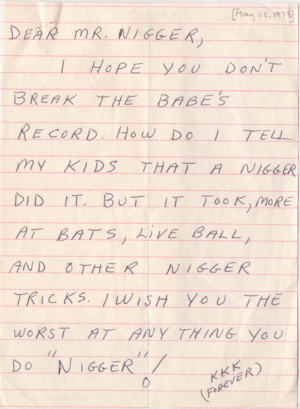 [May 25, 1973]
DEAR MR. NIGGER,
I HOPE YOU DON'T
BREAK THE BABE'S
RECORD. HOW DO I TELL
MY KIDS THAT A NIGGER
DID IT. BUT IT TOOK, MORE
AT BATS, LIVE BALL,
AND OTHER NIGGER
TRICKS. I WISH YOU THE
WORST AT ANY THING YOU
DO "NIGGER"!
KKK
(FOREVER)